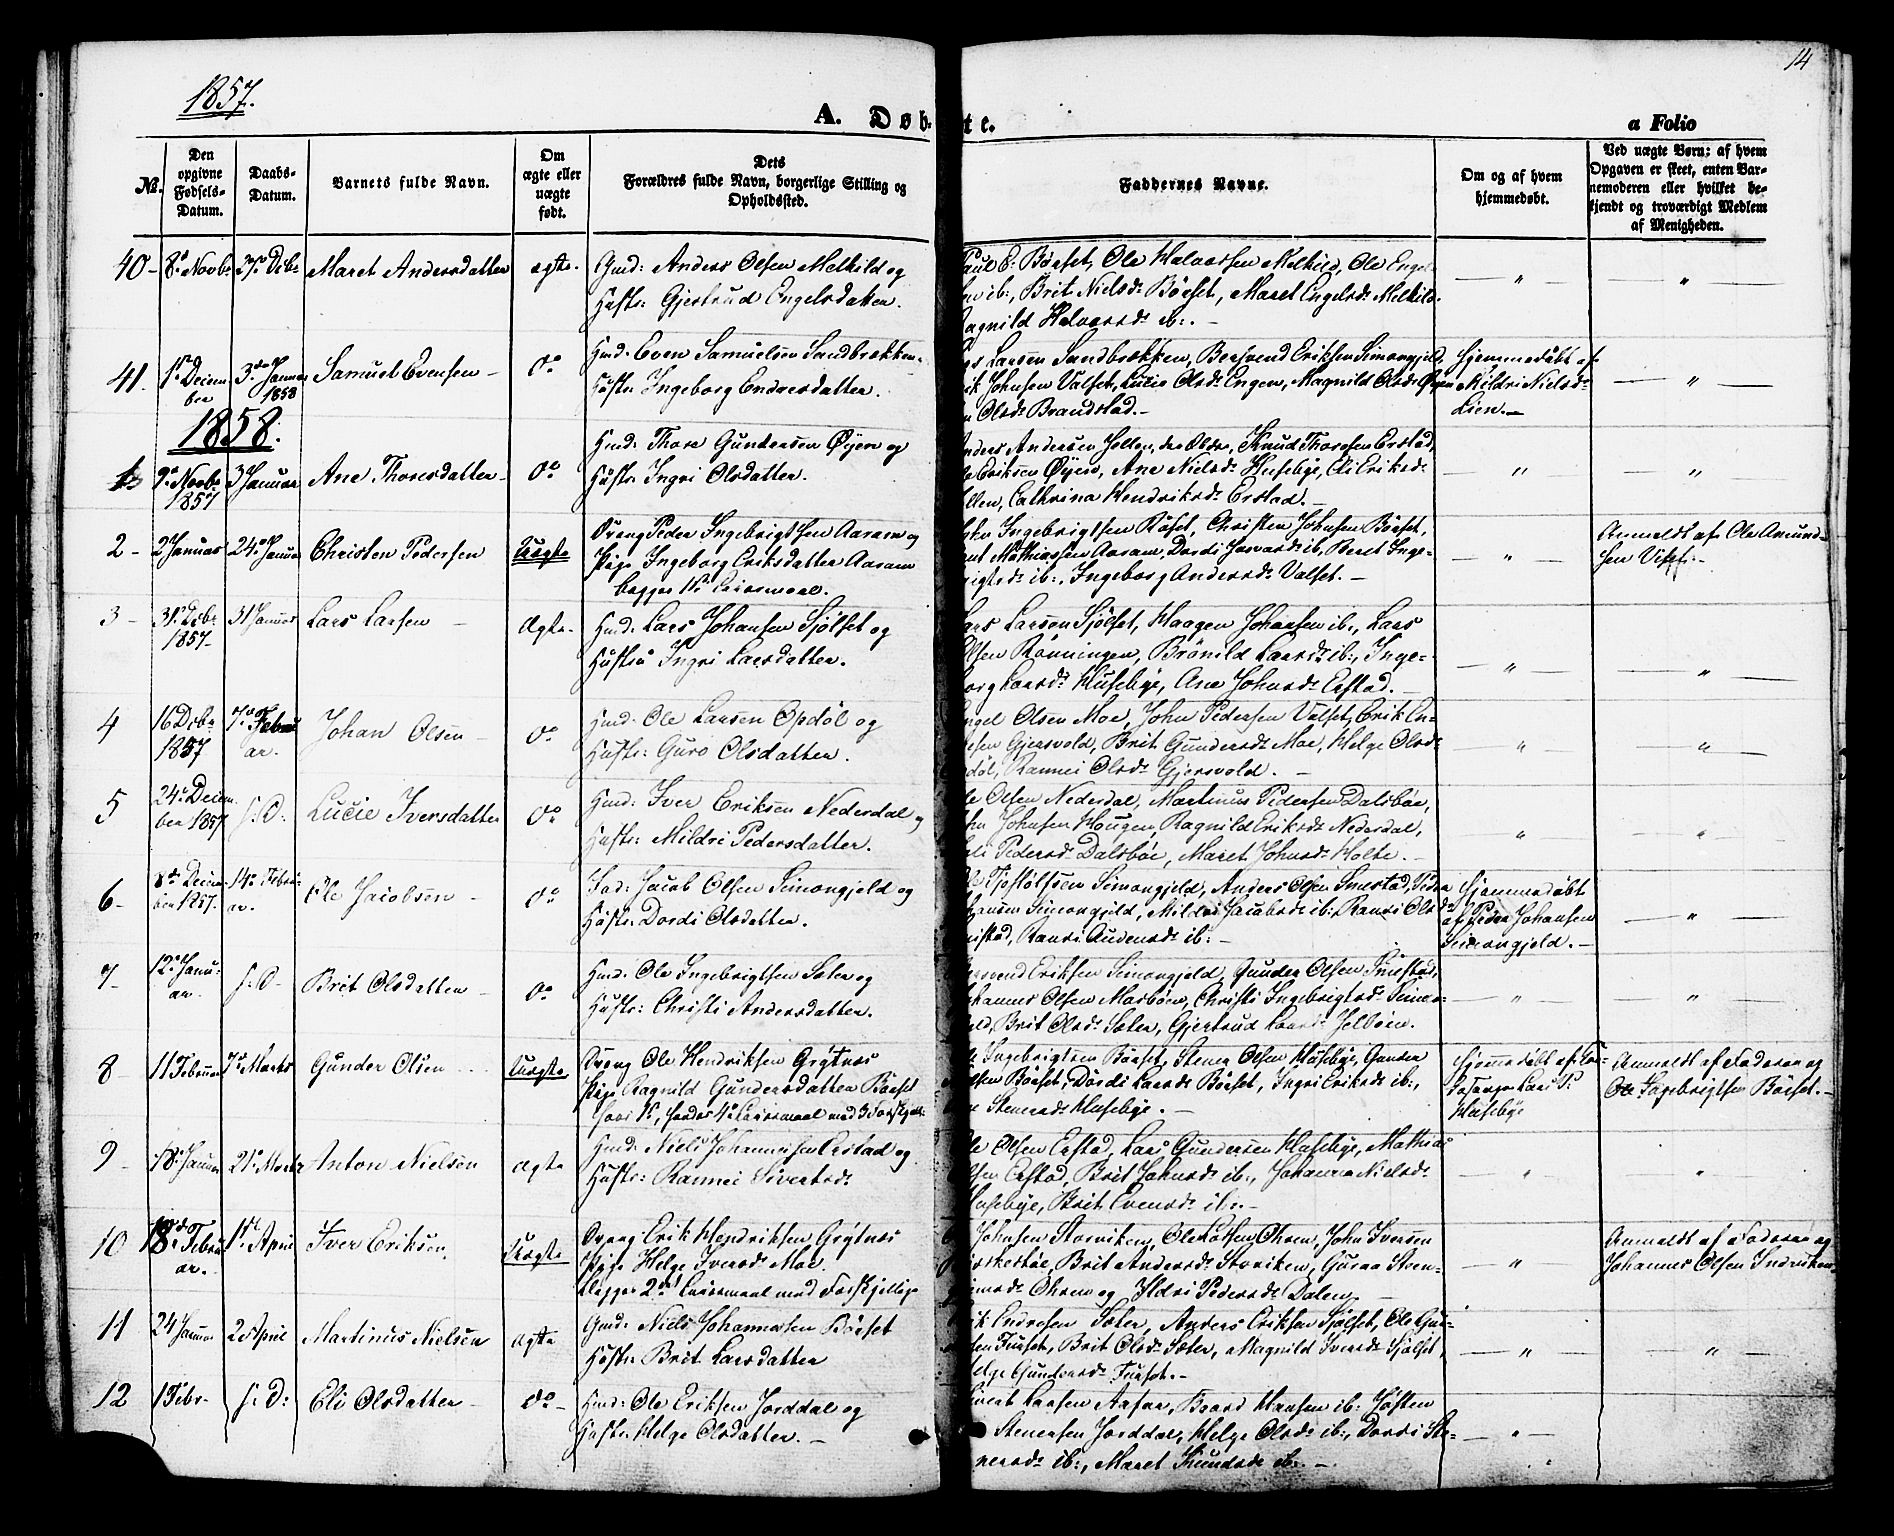 14
1857.
A. Døbte.
a Folio
No.
Den opgivne Fødsels-Datum.
Daabs-Datum.
Barnets fulde Navn.
Om ægte eller uægte født.
Dets Forældres fulde Navn, borgerlige Stilling og Opholdssted.
Faddernes Navne.
Om og af hvem hjemmedøbt.
Ved uægte Børn: af hvem Opgaven er skeet, enten Barnemoderen eller hvilket bekjendt og troværdigt Medlem af Menigheden.
40 - 8de Novbr Maret Andersdatter ægte.
Gmd: Anders Olsen Melkild og
Hustr: Gjertrud Engelsdatter.
Paul E: Børset, Ole Halvorsen Melkild, Ole Engel-
sen ib:, Brit Nielsd: Børset, Maret Engelsd: Melkild
Ragnild Halvorsd: ib:. -
41. 1ste Decem
ber 3die Januar
1858 Samuel Evensen - Do
Hmd: Even Samuelsen Sandbrækken
Hustr: Ingeborg Endresdatter.
Lars Larsen Sandbrækken, Bersvend Eriksen Simongjeld,
Erik Johnsen Valset, Lucie Olsd: Engen, Magnild Olsd: Øyen
Olsd: Brandstad. -
Hjemmedøbt af
Mildri Nielsd:
Lien. -
1858.
1 9de Novbr
1857 3 Januar Ane Thoresdatter - Do
Hmd: Thore Gundersen Øyen og
Hustr: Ingri Olsdatter.
Anders Andersen Jollen, den Ældre, Knud Thoresen Erstad,
Ole Eriksen Øyen, Ane Nielsd: Husebye, Eli Eriksd:
Jollen, Cathrina Hendriksd: Erstad. -
2 - 2 Januar 24de Januar Christen Pedersen Uægte
Dreng Peder Ingebrigtsen Aaram og
Pige Ingeborg Eriksdatter Aaram
begges 1ste Leiermaal.
Ingebrigtsen Røset, Christen Johnsen Børset,
Knut Mathiassen Aaram, Dordi Ivarsd: ib, Beret Inge-
brigtsd: ib:, Ingeborg Andersd: Valset. -
Anmeldt af Ole Amund-
sen Visset. -
3 - 31te Decbr
1857 31 Januar Lars Larsen - Ægte -
Hmd: Lars Johansen Sjølset og
Hustru Ingri Larsdatter.
Lars Larsen Sjølset, Haagen Johansen ib:, Lars
Olsen Rønningen, Brønild Larsd: ib:, Inge-
borg Larsd: Husebye, Ane Johnsd: Erstad. -
4 16 Decbr
1857 7de Febru
ar. Johan Olsen - Do
Hmd: Ole Larsen Opdøl og
Hustr: Guro Olsdatter.
Engel Olsen Moe, John Pedersen Valset, Erik En-
gelsen Gjersvold, Brit Gundersd: Moe, Helge Olsd:
Opdøl, Rannei Olsd: Gjersvold. -
5 24de Decem
ber 1857 s: D: Lucie Iversdatter Do
Hmd: Iver Eriksen Nederdal og
Hustr: Mildri Pedersdatter.
Ole Olsen Nederdal, Martinus Pedersen Dalsbøe,
John Johnsen Hougen, Ragnild Eriksd: Nederdal,
Eli Pedersd: Dalsbøe, Maret Johnsd: Holte. -
6 - 8de Decem
ber 1857. 14de Febru-
ar. Ole Jacobsen - Do
Fad: Jacob Olsen Simongjeld og
Hustr: Dordi Olsdatter.
Ole Tjostolfsen Simongjeld, Anders Olsen Smestad, Peder
Johansen Simongjeld, Mildri Jacobsd: ib: Randi Olsd:
Smistad, Randi Audensd: ib: -
Hjemmedøbt
af Peder Johansen
Simongjeld. -
7 - 12de Janu-
ar. s: D - Brit Olsdatter - Do
Hmd: Ole Ingebrigtsen Sæter og
Hustr: Christi Andersdatter.
Bersvend Eriksen Simongjeld, Gunder Olsen Smestad,
Johannes Olsen Marbøen, Christi Ingebrigtsd: Simon-
gjeld, Brit Olsd: Sæter, Gjertrud Larsd: Jelbøen.
8 - 11 Februar 7de Marts Gunder Olsen Uægte
Dreng Ole Hendriksen Grytnes
Pige Ragnild Gundersdatter Børset
hans 1ste, hendes 4de Leiermaal med 3 Forskjell:
Ole Ingebrigtsen Børset, Stener Olsen Husebye, Gunder
Olsen Børset, Dordi Larsd: Børset, Ingri Eriksd: ib:,
Stenersd: Husebye. -
Hjemmedøbt af For-
sanger Lars P:
Husebye
Anmeldt af Faderen og
Ole Ingebrigtsen Børset. -
9 - 18de Januar 21de Marts Anton Nielsen ægte
Hmd: Niels Johannesen Erstad og
Hustr: Rannei Sivertsd:
Ole Olsen Erstad, Lars Gundersen Husebye, Mathias
Olsen Erstad, Brit Johnsd: ib:, Johanna Nielsd:
Husebye, Brit Evensd: ib:. -
10 18de Febru
ar. 1ste April Iver Eriksen. Uægte
Dreng Erik Hendriksen Grytnes
Pige Helge Iversd: Moe.
begges 2det Leiermaal med Forskjellige
Johnsen Storviken, Ole Olsen Ohren, John Iversen
Birkestøl, Brit Andersd: Storviken, Guraa Sven-
Ohren og Ildri Pedersd: Dalen. -
Anmeldt af Faderen og
Johannes Olsen Indviken
11 24 Januar 2 April Martinus Nielsen ægte
Gmd: Niels Johannesen Børset
Hustr: Brit Larsdatter
Erik Endresen Sæter, Anders Eriksen Sjølset, Ole Gun-
sen Furset, Brit Olsd: Sæter, Magnild Iversd: Sjølset,
Helge Gundersd: Furset. -
12 1 Febr - s: D: Eli Olsdatter - Do -
Hmd: Ole Eriksen Jorddal og
Hustr: Helge Olsdatter. -
Sivert Larsen Aasen, Baard Hansen ib: Josten
Stenersen Jorddal, Helge Olsd: ib:, Dordi Ste-
nersd: ib:, Maret Knudsd: ib:. -